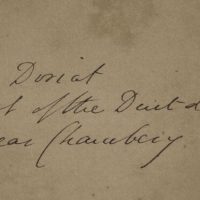 Doriat
of the Dent d
near Chambery